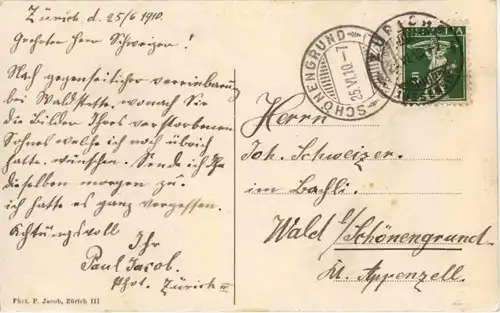 Zürich d. 25/6 1910.
Geehrter Herr Schweizer!
Nach gegenseitiger vereinbarung
bei Waldstatt, wonach Sie
die Bilder Ihres verstorbenen
Sohnes welche ich noch übrich
hatte, wünschen. Sende ich Ihn
dieselben morgen zu.
ich hatte es ganz vergessen.
Achtungsvoll
Ihr
Paul Jacob.
Phot. Zürich III
Phot. P. Jacob, Zürich III
SCHÖNENGRUND
25.VI.10.-7
ZÜRICH
HELVETIA
5
Herrn
Joh. Schweizer.
im Bächli.
Wald b/Schönengrund.
Kt. Appenzell.